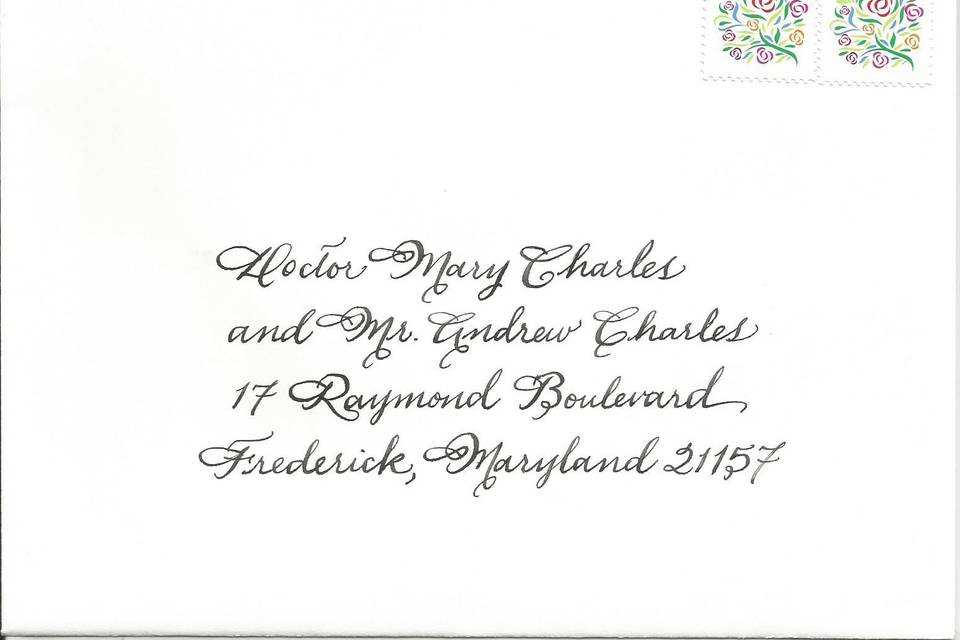 Doctor Mary Charles
and Mr. Andrew Charles
17 Raymond Boulevard
Frederick, Maryland 21157